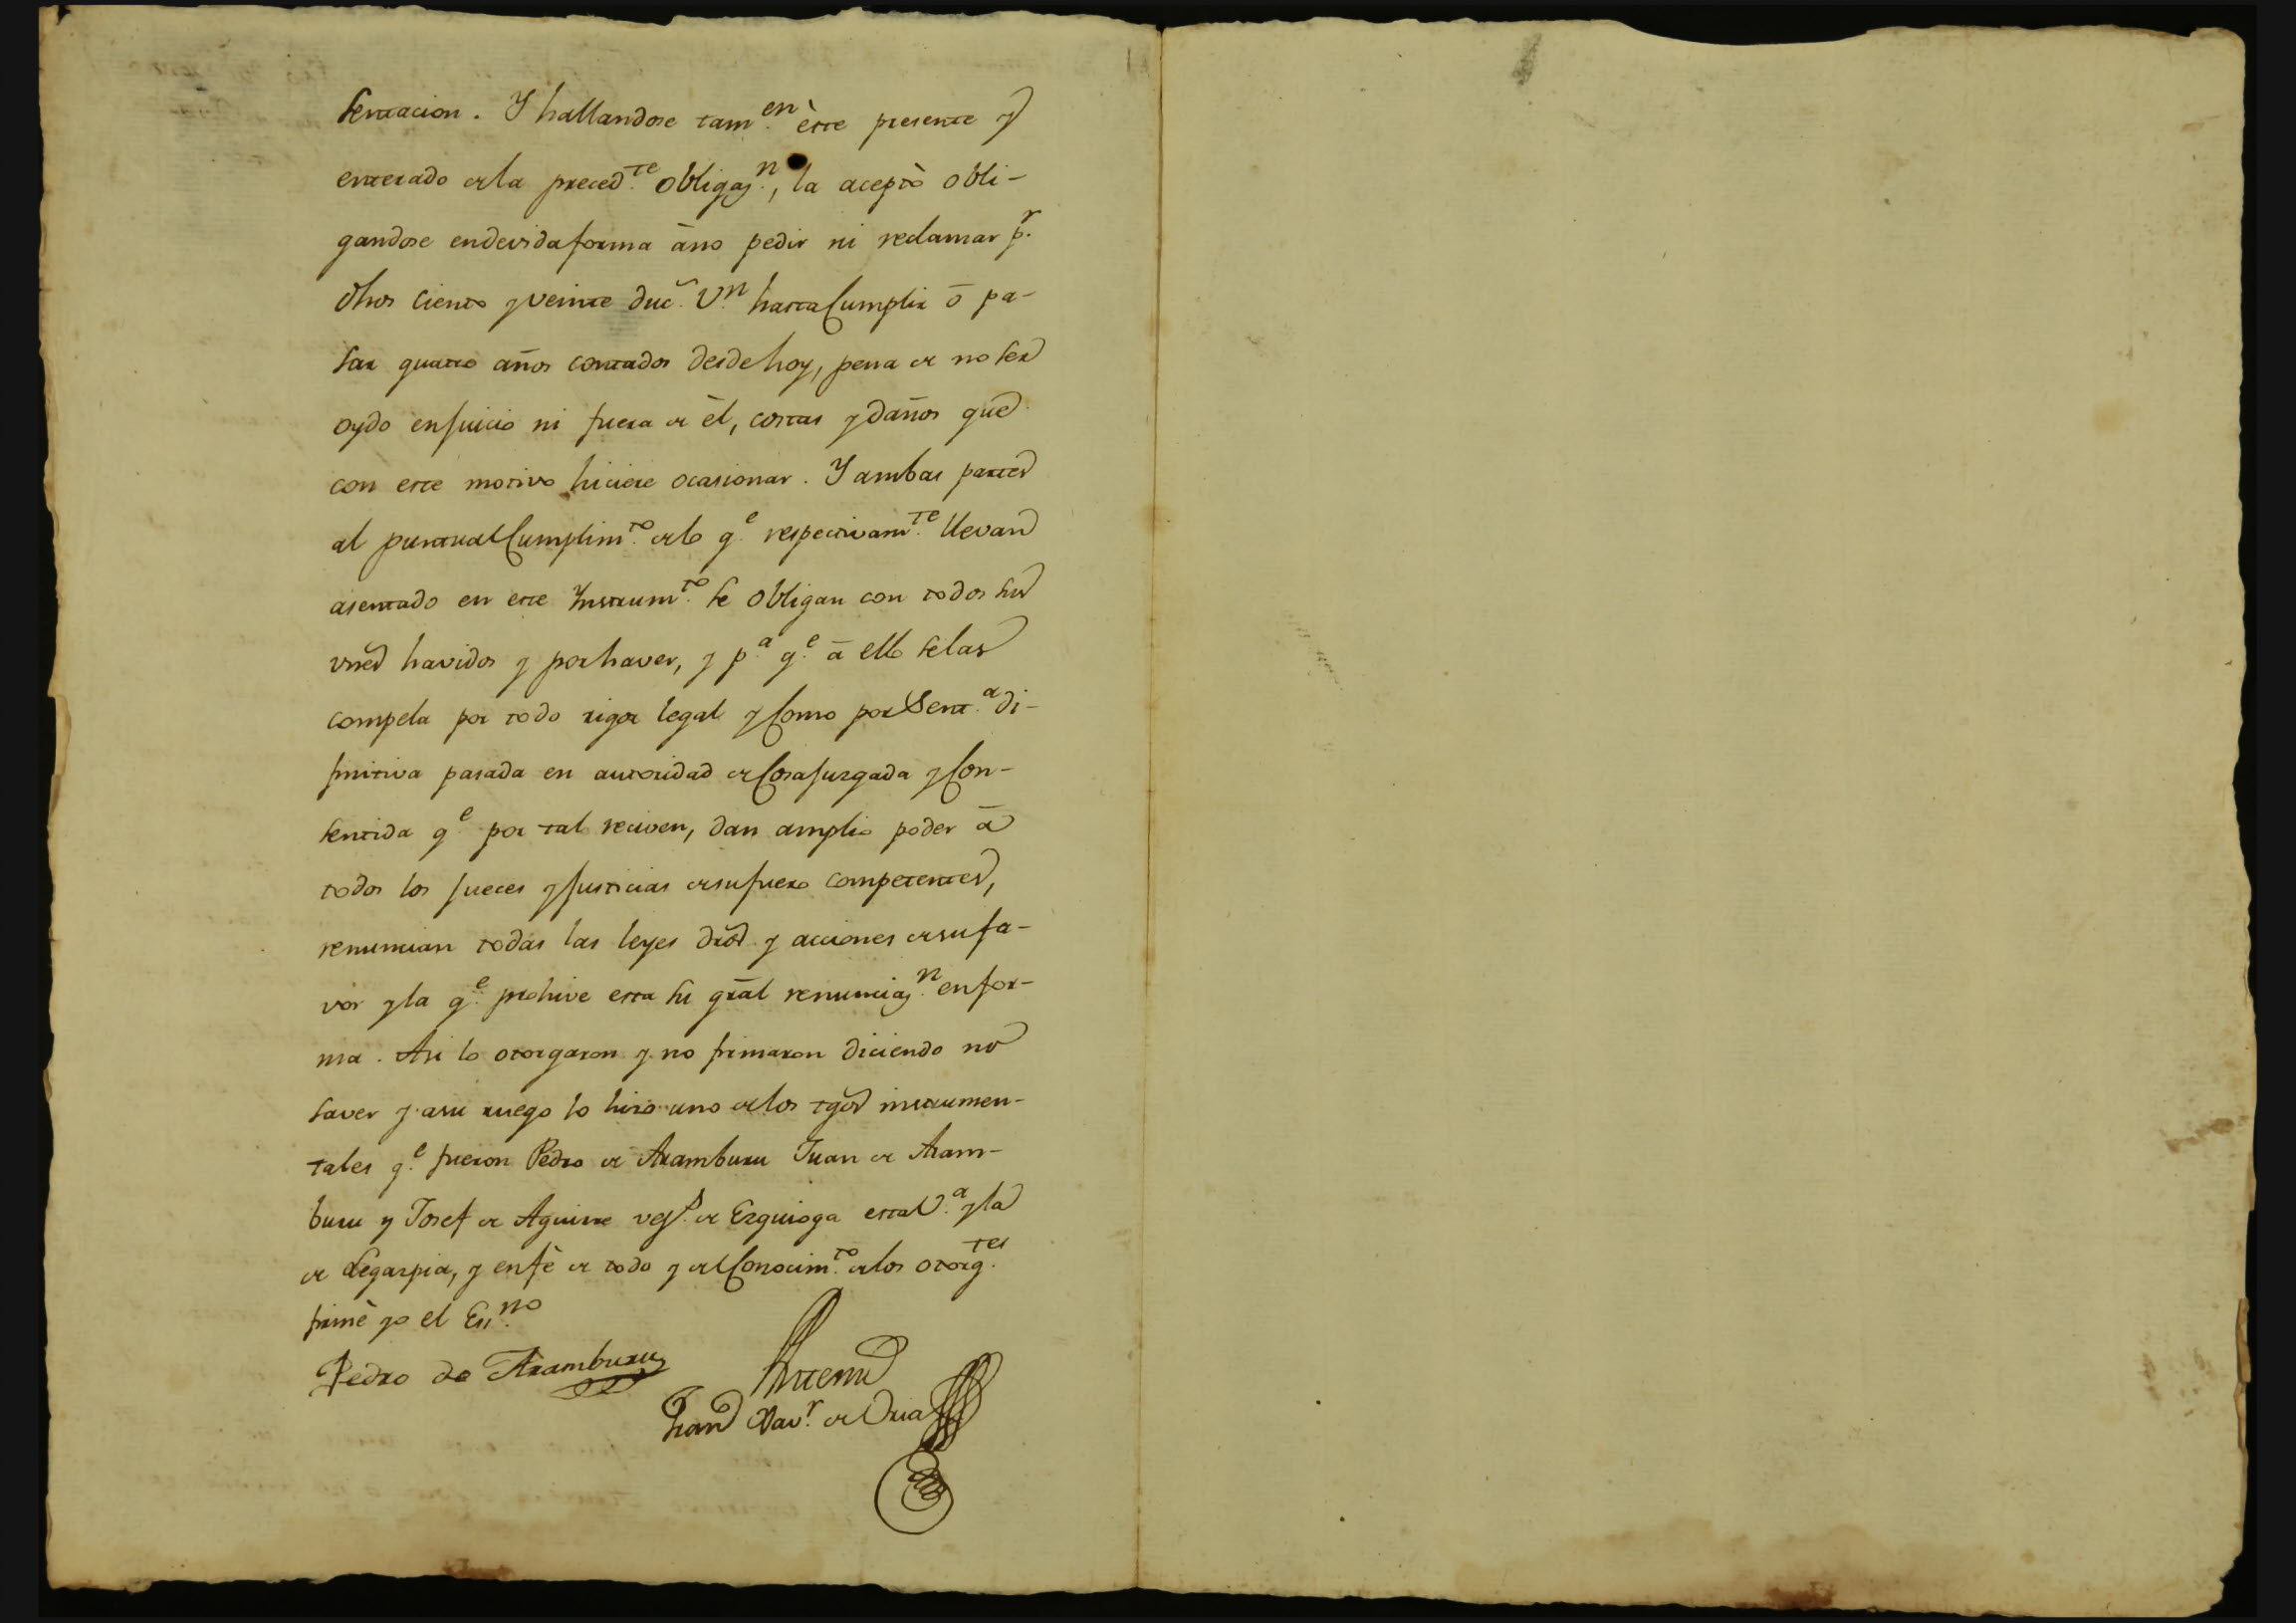 sentacion. Y hallandose tam.en este presente y
enterado de la preced.te obligaz.n, la aceptò obli-
gandose en devida forma à no pedir ni reclamar p.r
dhos ciento y veinte duc.s V.n hasta Cumplir ò pa-
sar quatro años contados desde hoy, pena de no ser
oydo en Juicio ni fuera de èl, costas y daños que
con este motivo hiciere ocasionar. Y ambas partes
al puntual Cumplim.to de lo q.e respectivam.te llevan
asentado en este Instrum.to se obligan con todos sus
vnes havidos y por haver, y p.a q.e à ello se las
compela por todo rigor legal y Como por Sent.a di-
finitiva pasada en autoridad de Cosa Juzgada y Con-
sentida q.e por tal reciven, dan amplio poder à
todos los Jueces y Justicias de su fuero competentes,
renuncian todas las leyes dros y acciones de su fa-
vor y la q.e prohive esta su gral renunciaz.n en for-
ma. Asi lo otorgaron y no firmaron diciendo no
saver y a su ruego lo hizo uno de los tgos instrumen-
tales q.e fueron Pedro de Aramburu Juan de Aram-
buru y Josef de Aguirre vez.s de Ezquioga esta V.a y la
de Legazpia, y en fè de todo y del Conocim.to de los otorg.tes
firmè yo el Es.no
Pedro de Aramburu
Antemi
Fran Xav.r de Oria